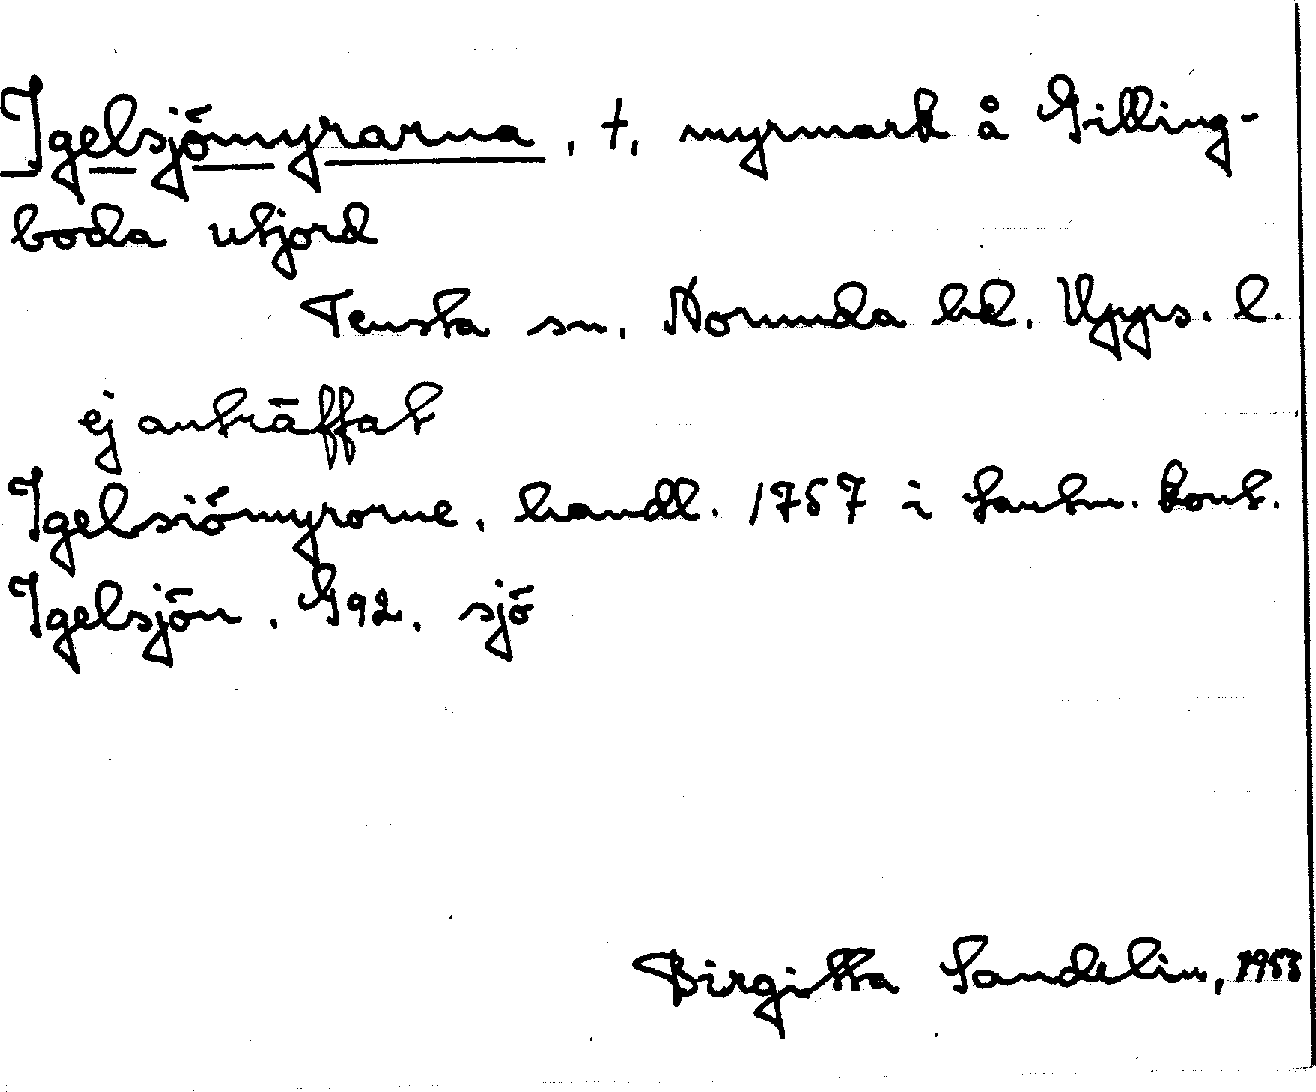 Igelsjömyrarna, †, myrmark å Gilling-
boda utjord
Tensta sn. Norunda hd. Upps. l.
ej anträffat
Igelsiömyrorne, handl. 1757 i lantm. kont.
Igelsjön, G92, sjö
Birgitta Sandelin, 1953